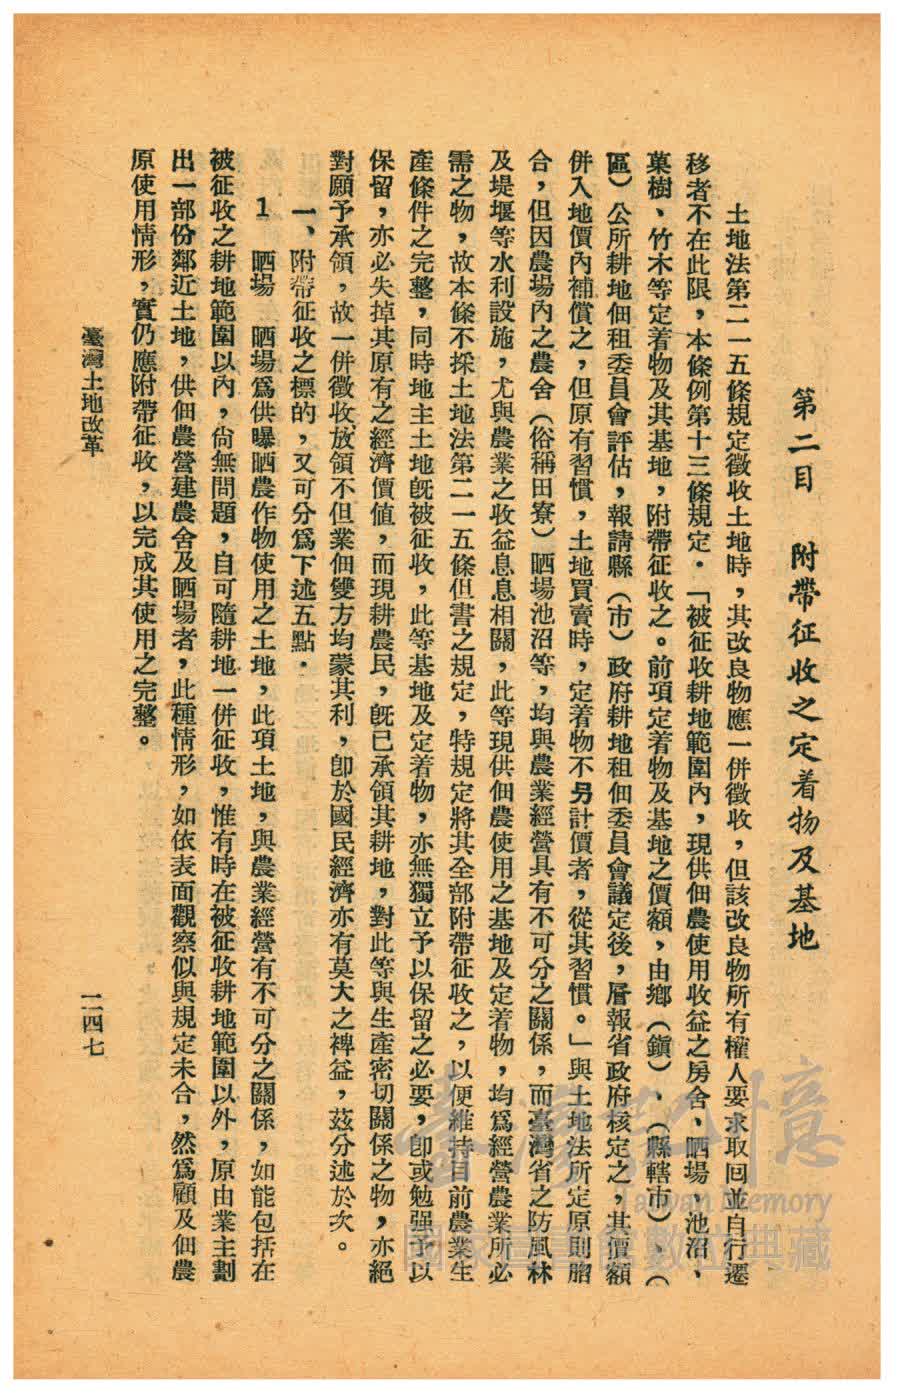 第二目　附帶征收之定着物及基地
土地法第二一五條規定徵收土地時，其改良物應一併徵收，但該改良物所有權人要求取回並自行遷
移者不在此限，本條例第十三條規定．「被征收耕地範圍內，現供佃農使用收益之房舍、晒場、池沼、
菓樹、竹木等定着物及其基地，附帶征收之。前項定着物及基地之價額，由鄉（鎮）、（縣轄市）、（
區）公所耕地佃租委員會評估，報請縣（市）政府耕地租佃委員會議定後，層報省政府核定之，其價額
併入地價內補償之，但原有習慣，土地買賣時，定着物不另計價者，從其習慣。」與土地法所定原則脗
合，但因農場內之農舍（俗稱田寮）晒場池沼等，均與農業經營具有不可分之關係，而臺灣省之防風林
及堤堰等水利設施，尤與農業之收益息息相關，此等現供佃農使用之基地及定着物，均爲經營農業所必
需之物，故本條不採土地法第二一五條但書之規定，特規定將其全部附帶征收之，以便維持目前農業生
產條件之完整，同時地主土地旣被征收，此等基地及定着物，亦無獨立予以保留之必要，卽或勉强予以
保留，亦必失掉其原有之經濟價值，而現耕農民，旣已承領其耕地，對此等與生產密切關係之物，亦絕
對願予承領，故一併徵收放領不但業佃雙方均蒙其利，卽於國民經濟亦有莫大之裨益，茲分述於次。
一、附帶征收之標的，又可分爲下述五點．
1　晒場　晒場爲供曝晒農作物使用之土地，此項土地，與農業經營有不可分之關係，如能包括在
被征收之耕地範圍以內，尙無問題，自可隨耕地一併征收，惟有時在被征收耕地範圍以外，原由業主劃
出一部份鄰近土地，供佃農營建農舍及晒場者，此種情形，如依表面觀察似與規定未合，然爲顧及佃農
原使用情形，實仍應附帶征收，以完成其使用之完整。
臺灣土地改革
二四七
臺灣記憶
Taiwan Memory
國家圖書館數位典藏